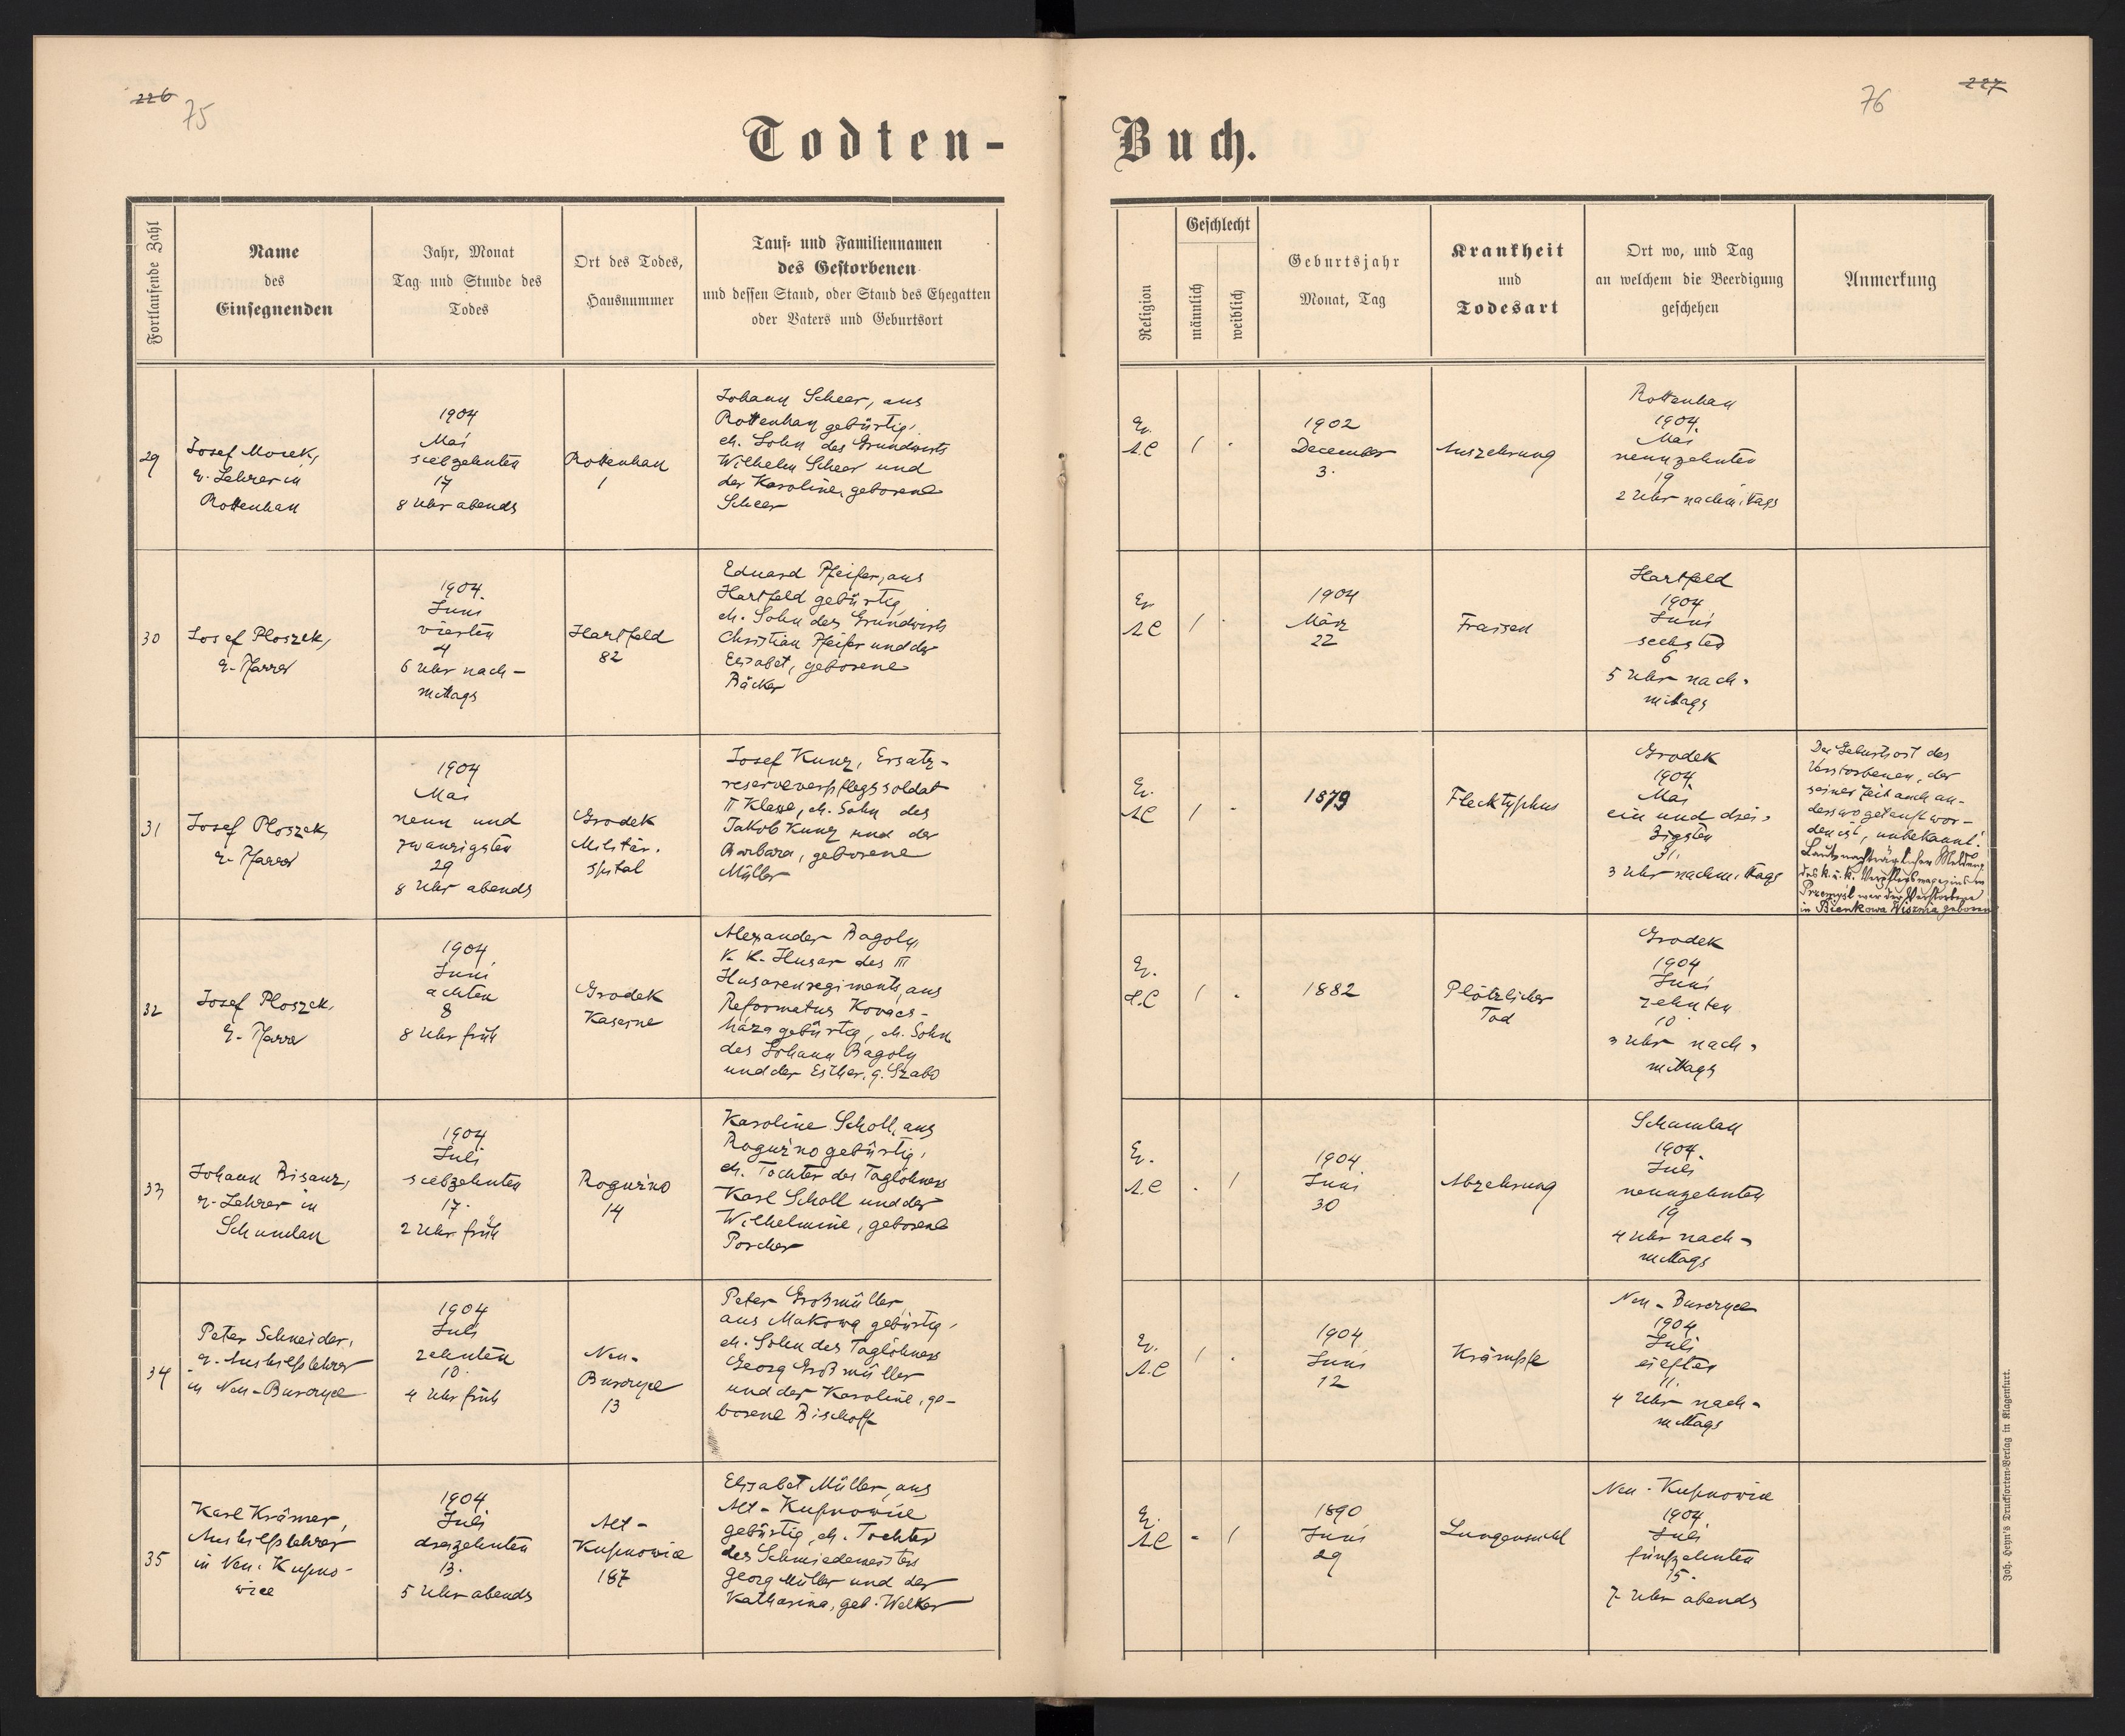 226
75
Todten-
Fortlaufende Zahl
Name
des
Einsegnenden
Jahr, Monat
Tag und Stunde des
Todes
Ort des Todes,
Hausnummer
Tauf- und Familiennamen
des Gestorbenen
und dessen Stand, oder Stand des Ehegatten
oder Vaters und Geburtsort
29
Josef Morek,
ev. Lehrer in
Rottenhan
1904
Mai
siebzehnten
17
8 Uhr abends
Rottenhan
1
Johann Scheer, aus
Rottenhan gebürtig,
eh. Sohn des Grundwirts
Wilhelm Scheer und
der Karoline, geborene
Scheer
30
Josef Ploszek,
ev. Pfarrer
1904.
Juni
vierten
4
6 Uhr nach-
mittags
Hartfeld
82
Eduard Pfeifer, aus
Hartfeld gebürtig,
eh. Sohn des Grundwirts
Christian Pfeifer und der
Elisabet, geborene
Bäcker
31
Josef Ploszek,
ev. Pfarrer
1904
Mai
neun und
zwanzigsten
29
8 Uhr abends
Grodek
Militär-
spital
Josef Kunz, Ersatz-
reserveverpflegssoldat
II Klasse, eh. Sohn des
Jakob Kunz und der
Barbara, geborene
Müller
32
Josef Ploszek,
ev. Pfarrer
1904
Juni
achten
8
8 Uhr früh
Grodek
Kaserne
Alexander Bagoly,
k. k. Husar des III
Husarenregiments, aus
Reformatus Kovacs-
háza gebürtig, eh. Sohn
des Johann Bagoly
und der Esther, g. Szabo
33
Johann Bisanz,
ev. Lehrer in
Schumlau
1904.
Juli
siebzehnten
17.
2 Uhr früh
Roguźno
14
Karoline Scholl, aus
Roguźno gebürtig,
eh. Tochter des Taglöhners
Karl Scholl und der
Wilhelmine, geborene
Porcher
34
Peter Schneider,
ev. Aushilfslehrer
in Neu-Burczyce
1904
Juli
zehnten
10.
4 Uhr früh
Neu-
Burczyce
13
Peter Großmüller,
aus Makowa gebürtig,
eh. Sohn des Taglöhners
Georg Großmüller
und der Karoline, ge-
borene Bischoff
35
Karl Krämer,
Aushilfslehrer
in Neu-Kupno-
wice
1904
Juli
dreizehnten
13.
5 Uhr abends
Alt-
Kupnowice
187
Elisabet Müller, aus
Alt-Kupnowice
gebürtig, eh. Tochter
des Schmiedemeisters
Georg Müller und der
Katharina, geb. Welker
227
76
Buch.
Religion
Geschlecht
männlich
weiblich
Geburtsjahr
Monat, Tag
Krankheit
und
Todesart
Ort wo, und Tag
an welchem die Beerdigung
geschehen
Anmerkung
Ev.
A.C
1902
December
3.
Auszehrung
Rottenhan
1904.
Mai
neunzehnten
19
2 Uhr nachmittags
Ev.
A C
1904
März
22
Fraisen
Hartfeld
1904
Juni
sechsten
6
5 Uhr nach-
mittags
Ev.
A C
1879
Flecktyphus
Grodek
1904
Mai
ein und drei-
zigsten
31.
3 Uhr nachmittags
Der Geburtsort des
Verstorbenen, der
seiner Zeit auch an-
derswo getauft wor-
den ist, unbekannt.
Laut nachträglicher Meldung
des k. u. k. Verpflegsmagazins in
Przemyśl war der Verstorbene
in Bienkowa Wisznia geboren
Ev.
H.C
1882
Plötzlicher
Tod
Grodek
1904
Juni
zehnten
10
3 Uhr nach-
mittags
Ev.
A.C
1904
Juni
30
Abzehrung
Schumlau
1904.
Juli
neunzehnten
19
4 Uhr nach-
mittags
Ev.
A.C
1904
Juni
12
Krämpfe
Neu-Burczyce
1904
Juli
eilften
11.
4 Uhr nach-
mittags
Ev.
A.C
1890
Juni
29
Lungensucht
Neu-Kupnowice
1904
Juli
fünfzehnten
15.
7 Uhr abends
Joh. Heyn's Drucksorten-Verlag in Klagenfurt.